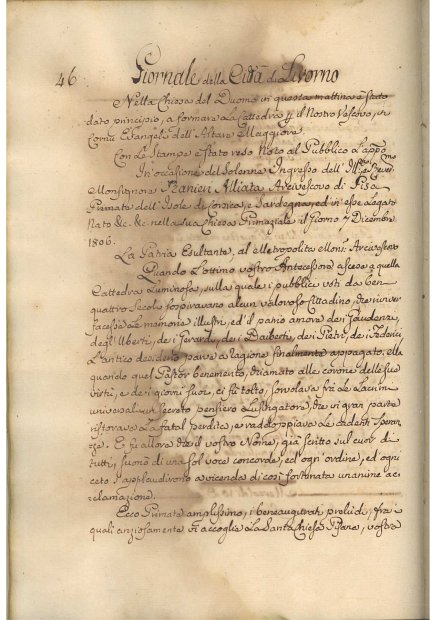 46 Giornale della Città di Livorno
Nella Chiesa del Duomo in questa mattina è stato
dato principio, a formare La Cattedra p il Nostro Vescovo, in
Cornu Evangeli dell'Altare Maggiore.
Con Le Stampe è stato reso Noto al Pubblico L'app.o
In occasione del Solenne Ingresso dell'
Monsignore Ranieri Alliata Arcivescovo di Pisa
Primate dell'Isole di Corsica, e Sardegna, ed in esse Legato
Nato &c. &c. nella sua Chiesa Primaziale il Giorno 7 Dicembre
1806.
La Patria Esultante, al Metropolita Mons. Arcivescovo
Quando L'ottimo vostro Antecessore ascese a quella
Cattedra Luminosa, sulla quale i pubblici voti da ben
quattro Secoli sospiravano alcun valoroso Cittadino, che rinver
=
facesse Le memorie illustri, ed il patrio amore dei Gaudenzi,
degl'Uberti, dei Gerardi, dei Daiberti, dei Pietri, dei Federici
L'antico desiderio parve a ragione finalmente appagato, ella
quando quel Pastor benemerito, chiamato alle corone delle sue
virtù, e dei giorni suoi, ci fu tolto, sorvolava frà Le Lacrime
universali un secreto pensiero Lusingatore, che in gran parte
ristorava La fatal perdita, e raddoppiava Le cadenti Speran
ze. E fu allora che il vostro Nome, già scritto sul cuor di
tutti, suonò di una sol voce concorde, ed ogni ordine, ed ogni
ceto applaudirono a vicenda di così fortunata unanime ac=
clamazione.
Ecco Primate amplissimo, i beneaugurati preludi, fra i
quali anziosamente vi accoglie La Santa Chiesa Pisana, vostra